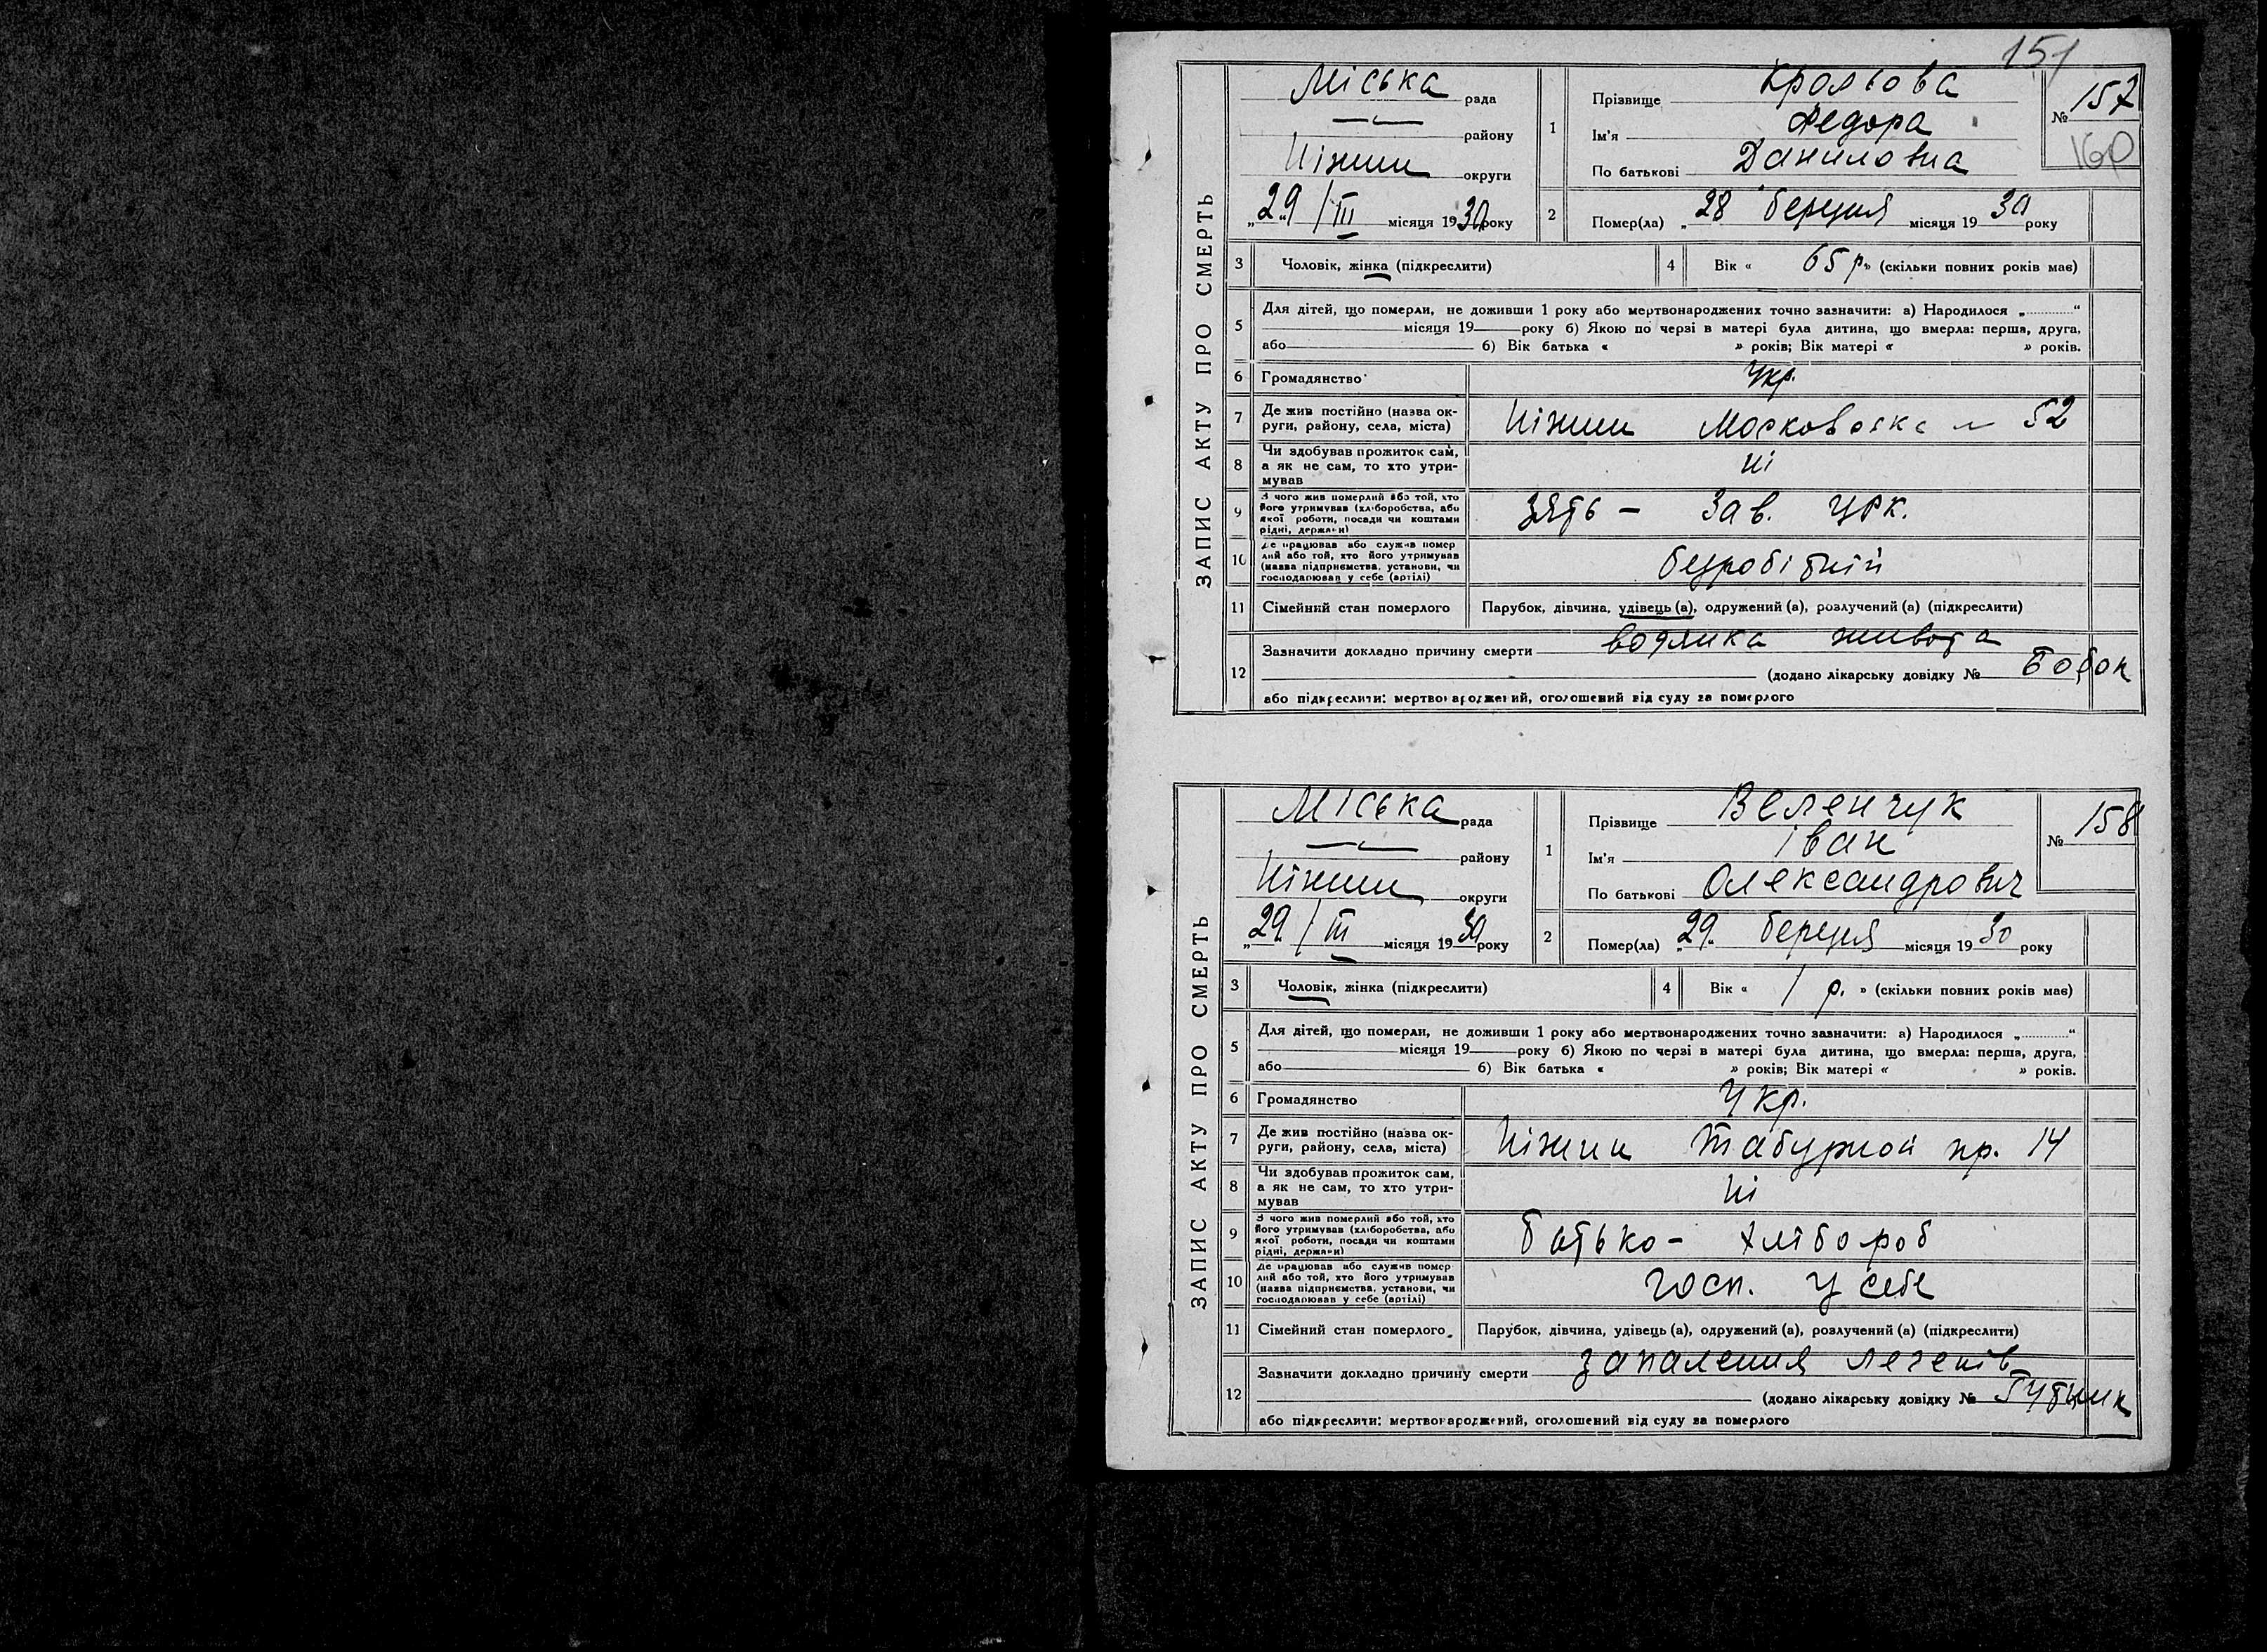 151
ЗАПИС АКТУ ПРО СМЕРТЬ
Міська рада
району
Ніжин округи
„29 / III місяця 1930 року
1
Прізвище Крольова
Ім'я Федора
По батькові Даниловна
№ 157
160
2
Помер(ла) „28 березня місяця 1930 року
3
Чоловік, жінка (підкреслити)
4
Вік « 65 р. » (скільки повних років має)
5
Для дітей, що померли, не доживши 1 року або мертвонароджених точно зазначити: а) Народилося „..........“
місяця 19 року б) Якою по черзі в матері була дитина, що вмерла: перша, друга,
або б) Вік батька « » років; Вік матері « » років.
6
Громадянство
Укр.
7
Де жив постійно (назва ок-
руги, району, села, міста)
Ніжин Московська 52
8
Чи здобував прожиток сам,
а як не сам, то хто утри-
мував
ні
9
З чого жив померлий або той, хто
його утримував (хліборобства, або
якої роботи, посади чи коштами
рідні, держави)
зять – Зав. ЦРК.
10
Де працював або служив помер
лий або той, хто його утримував
(назва підприємства, установи, чи
господарював у себе (артілі)
безробітній
11
Сімейний стан померлого
Парубок, дівчина, удівець (а), одружений (а), розлучений (а) (підкреслити)
12
Зазначити докладно причину смерти водянка живота
(додано лікарську довідку № Бобок
або підкреслити: мертвонароджений, оголошений від суду за померлого
ЗАПИС АКТУ ПРО СМЕРТЬ
Міська рада
району
Ніжин округи
„29 / III місяця 1930 року
1
Прізвище Веленчук
Ім'я Іван
По батькові Олександрович
№ 158
2
Помер(ла) „29 березня місяця 1930 року
3
Чоловік, жінка (підкреслити)
4
Вік « 1 р. » (скільки повних років має)
5
Для дітей, що померли, не доживши 1 року або мертвонароджених точно зазначити: а) Народилося „..........“
місяця 19 року б) Якою по черзі в матері була дитина, що вмерла: перша, друга,
або б) Вік батька « » років; Вік матері « » років.
6
Громадянство
Укр.
7
Де жив постійно (назва ок-
руги, району, села, міста)
Ніжин Табурной пр. 14
8
Чи здобував прожиток сам,
а як не сам, то хто утри-
мував
ні
9
З чого жив померлий або той, хто
його утримував (хліборобства, або
якої роботи, посади чи коштами
рідні, держави)
батько – хлібороб
10
Де працював або служив помер
лий або той, хто його утримував
(назва підприємства, установи, чи
господарював у себе (артілі)
госп. у себе
11
Сімейний стан померлого
Парубок, дівчина, удівець (а), одружений (а), розлучений (а) (підкреслити)
12
Зазначити докладно причину смерти запалення легенів
(додано лікарську довідку №
або підкреслити: мертвонароджений, оголошений від суду за померлого